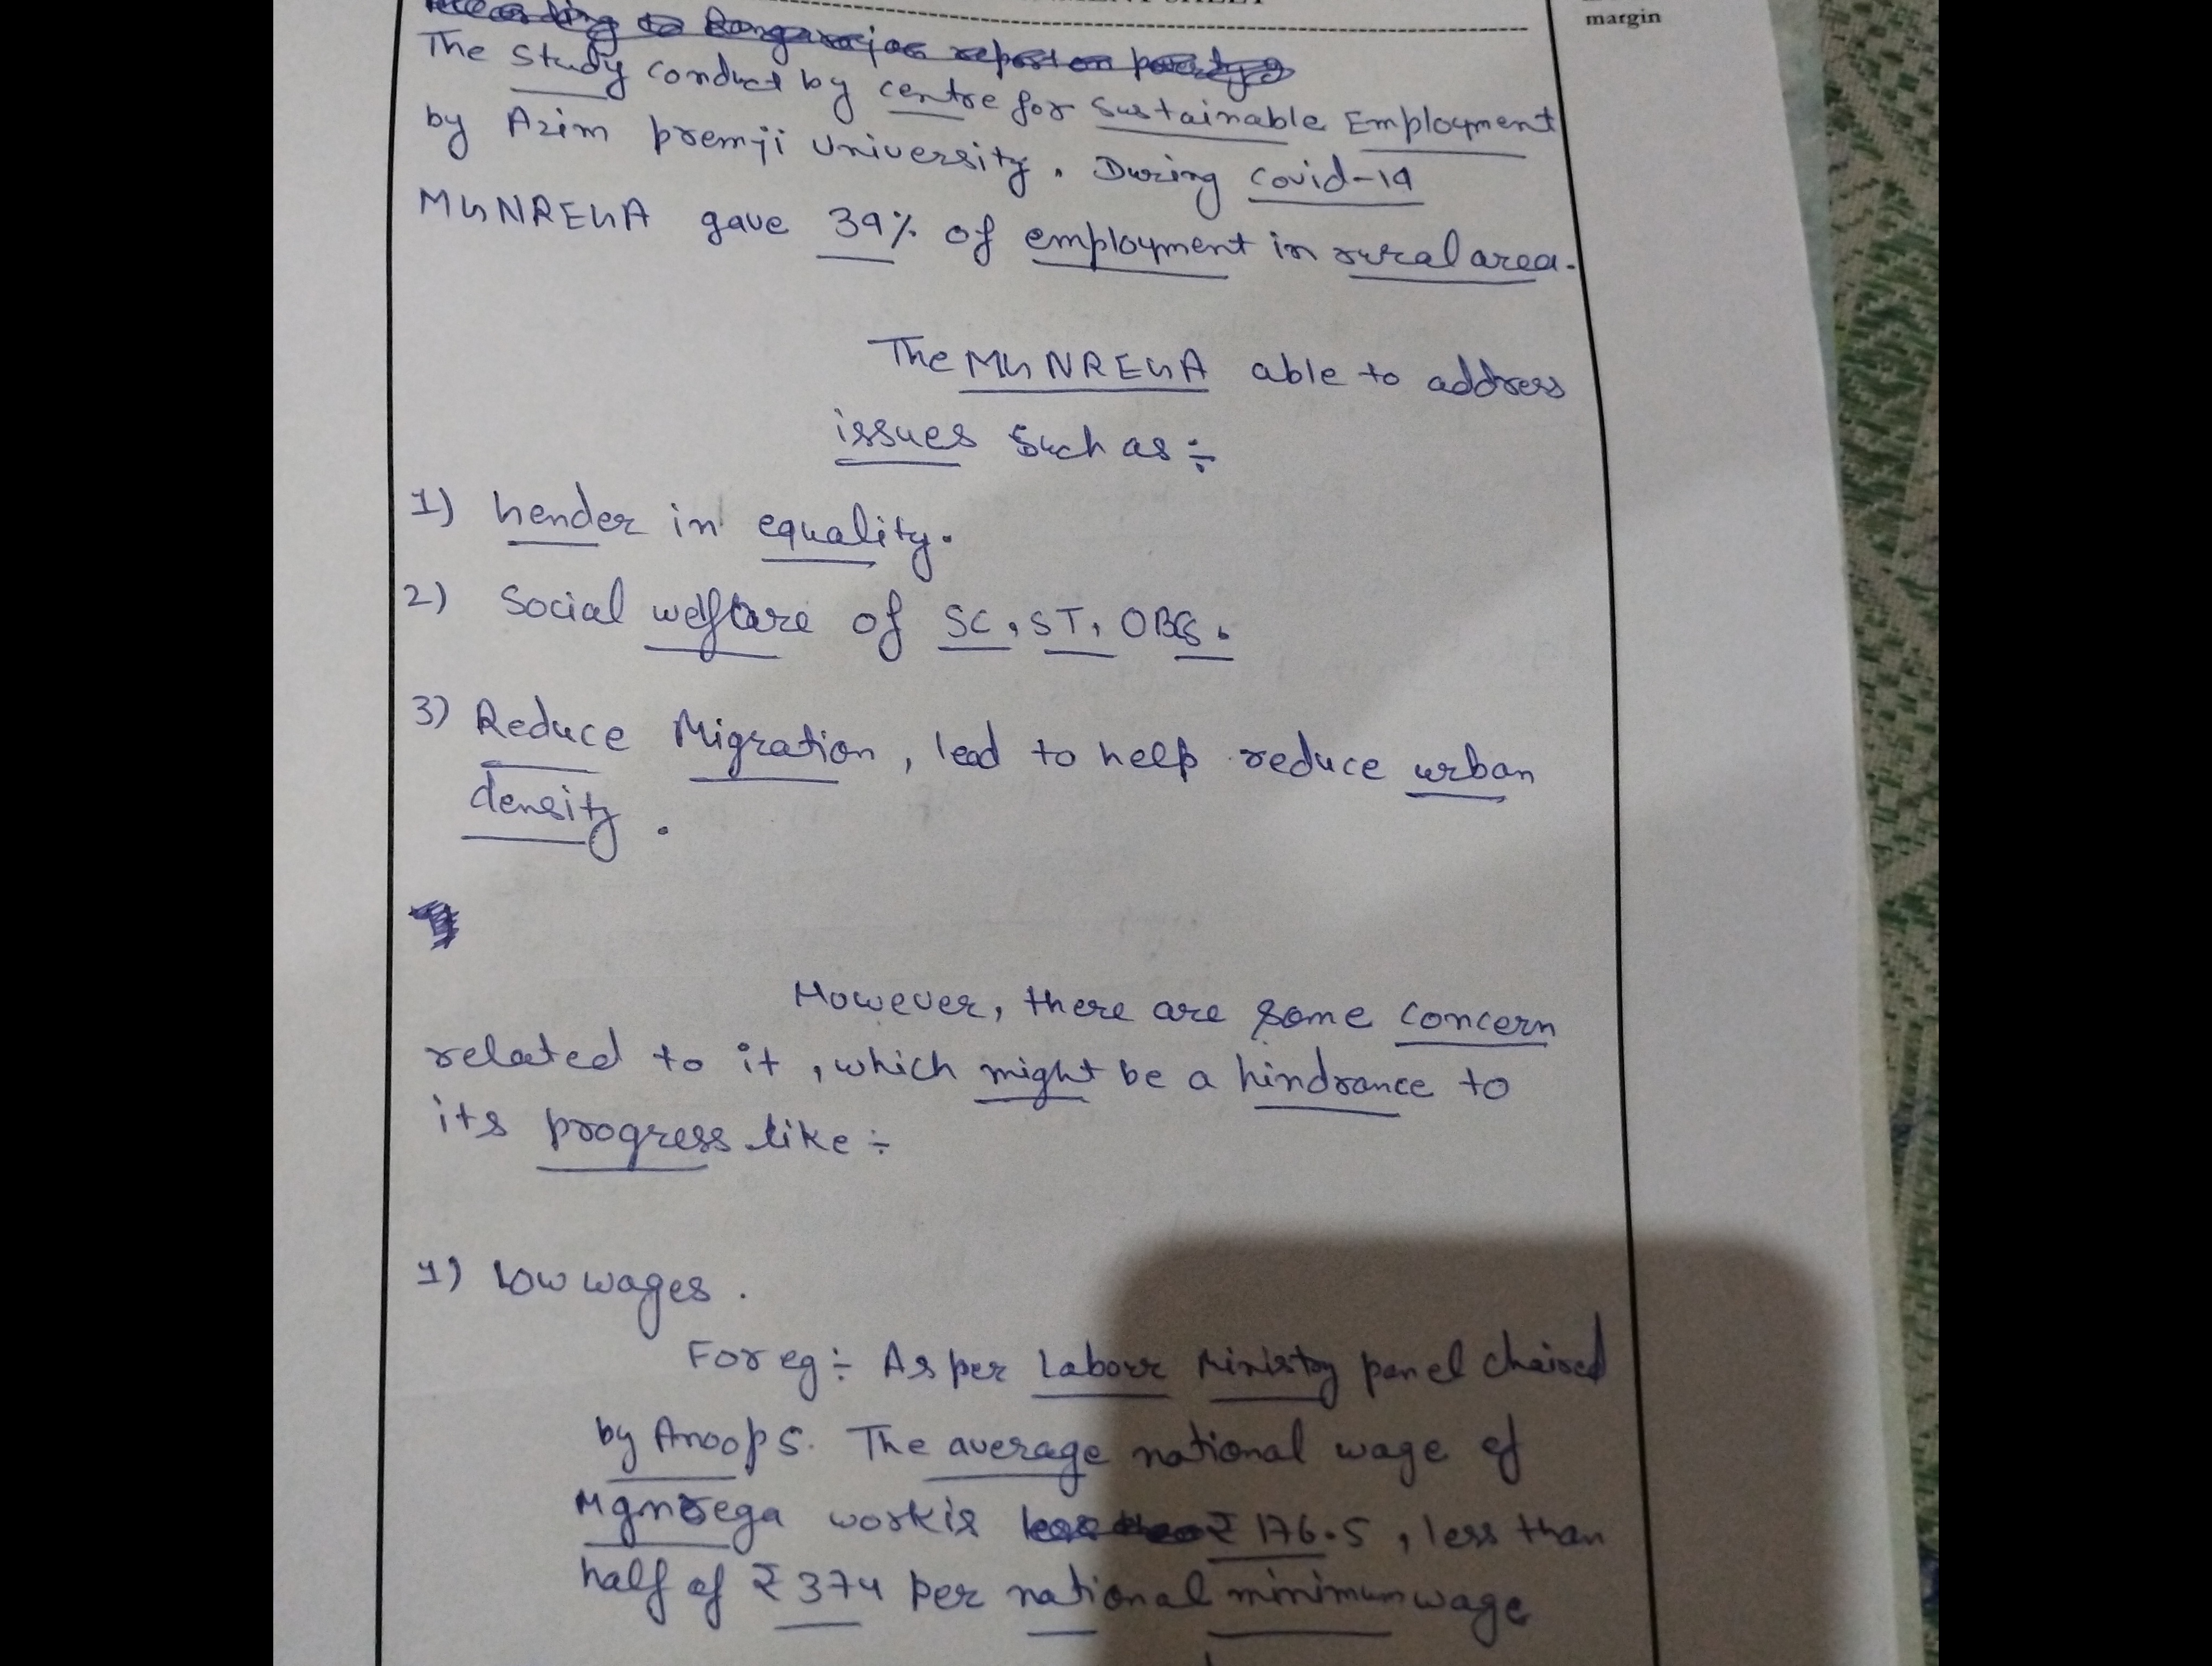 margin
The study conduct by centre for sustainable Employment
by Azim premji University. During covid-19
MGNREGA gave 39% of employment in rural area.
The MGNREGA able to address
issues such as ÷
1) Gender in equality.
2) Social welfare of SC, ST, OBCs.
3) Reduce Migration, lead to help reduce urban
density.
However, there are some concern
related to it, which might be a hindrance to
its progress like ÷
1) Low wages.
For eg ÷ As per Labour Ministry panel chaired
by Anoop S. The average national wage of
Mgnrega work is ₹ 176.5, less than
half of ₹ 374 per national minimum wage